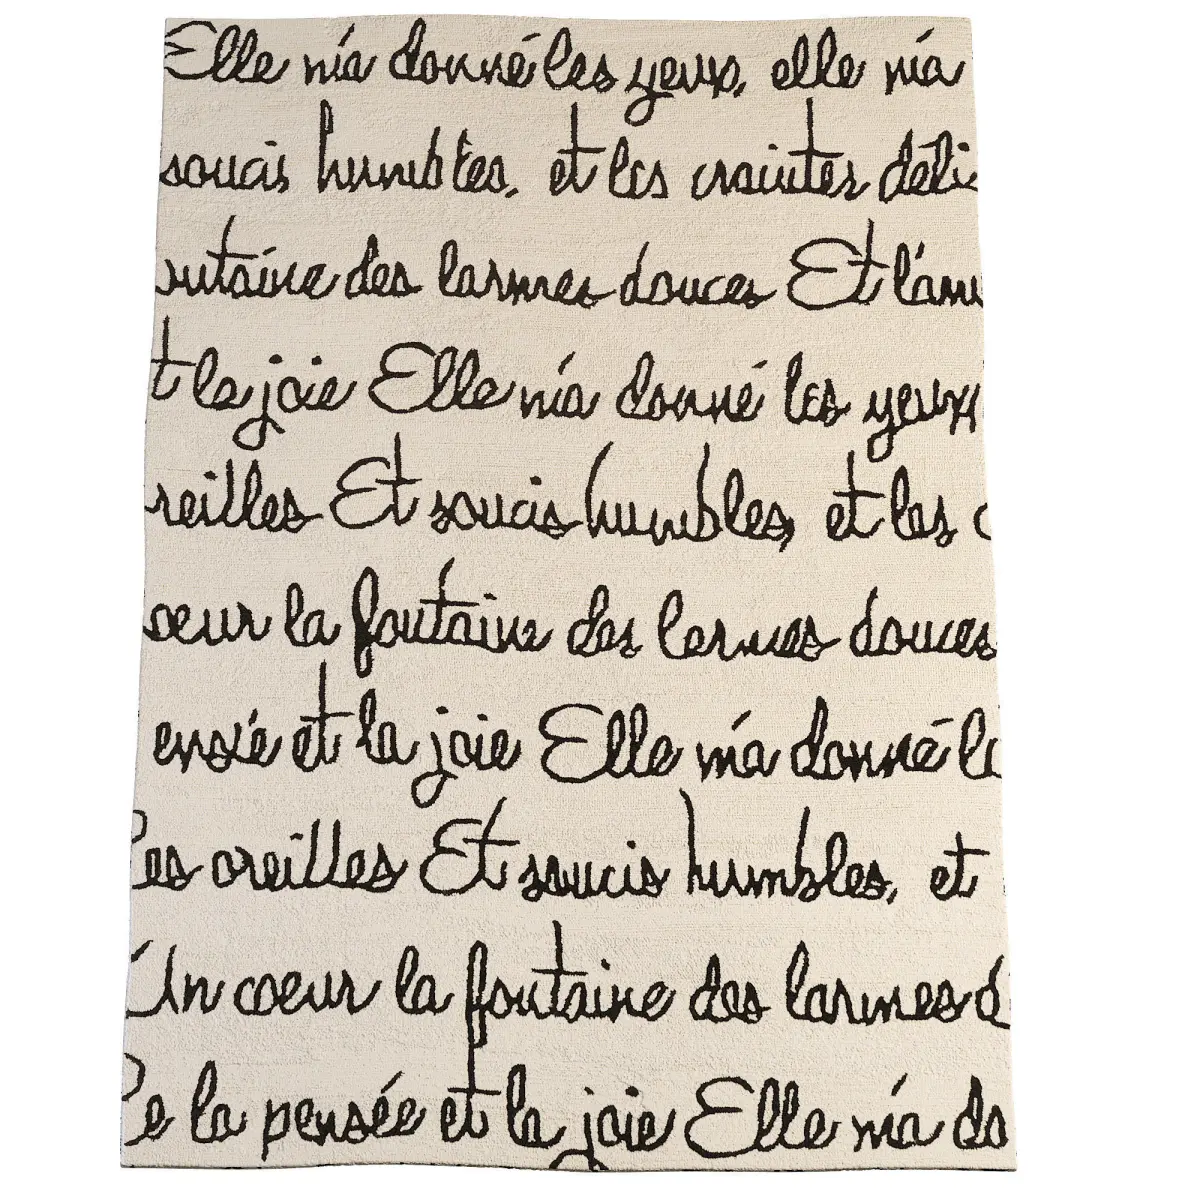 Elle m'a donné les yeux, elle m'a
soucis humbles, et les craintes déli
ntaine des larmes douces Et l'am
t la joie Elle m'a donné les yeux
reilles Et soucis humbles, et les c
oeur la fontaine des larmes douces
ensée et la joie Elle m'a donné le
les oreilles Et soucis humbles, et
Un coeur la fontaine des larmes d
e la pensée et la joie Elle m'a do